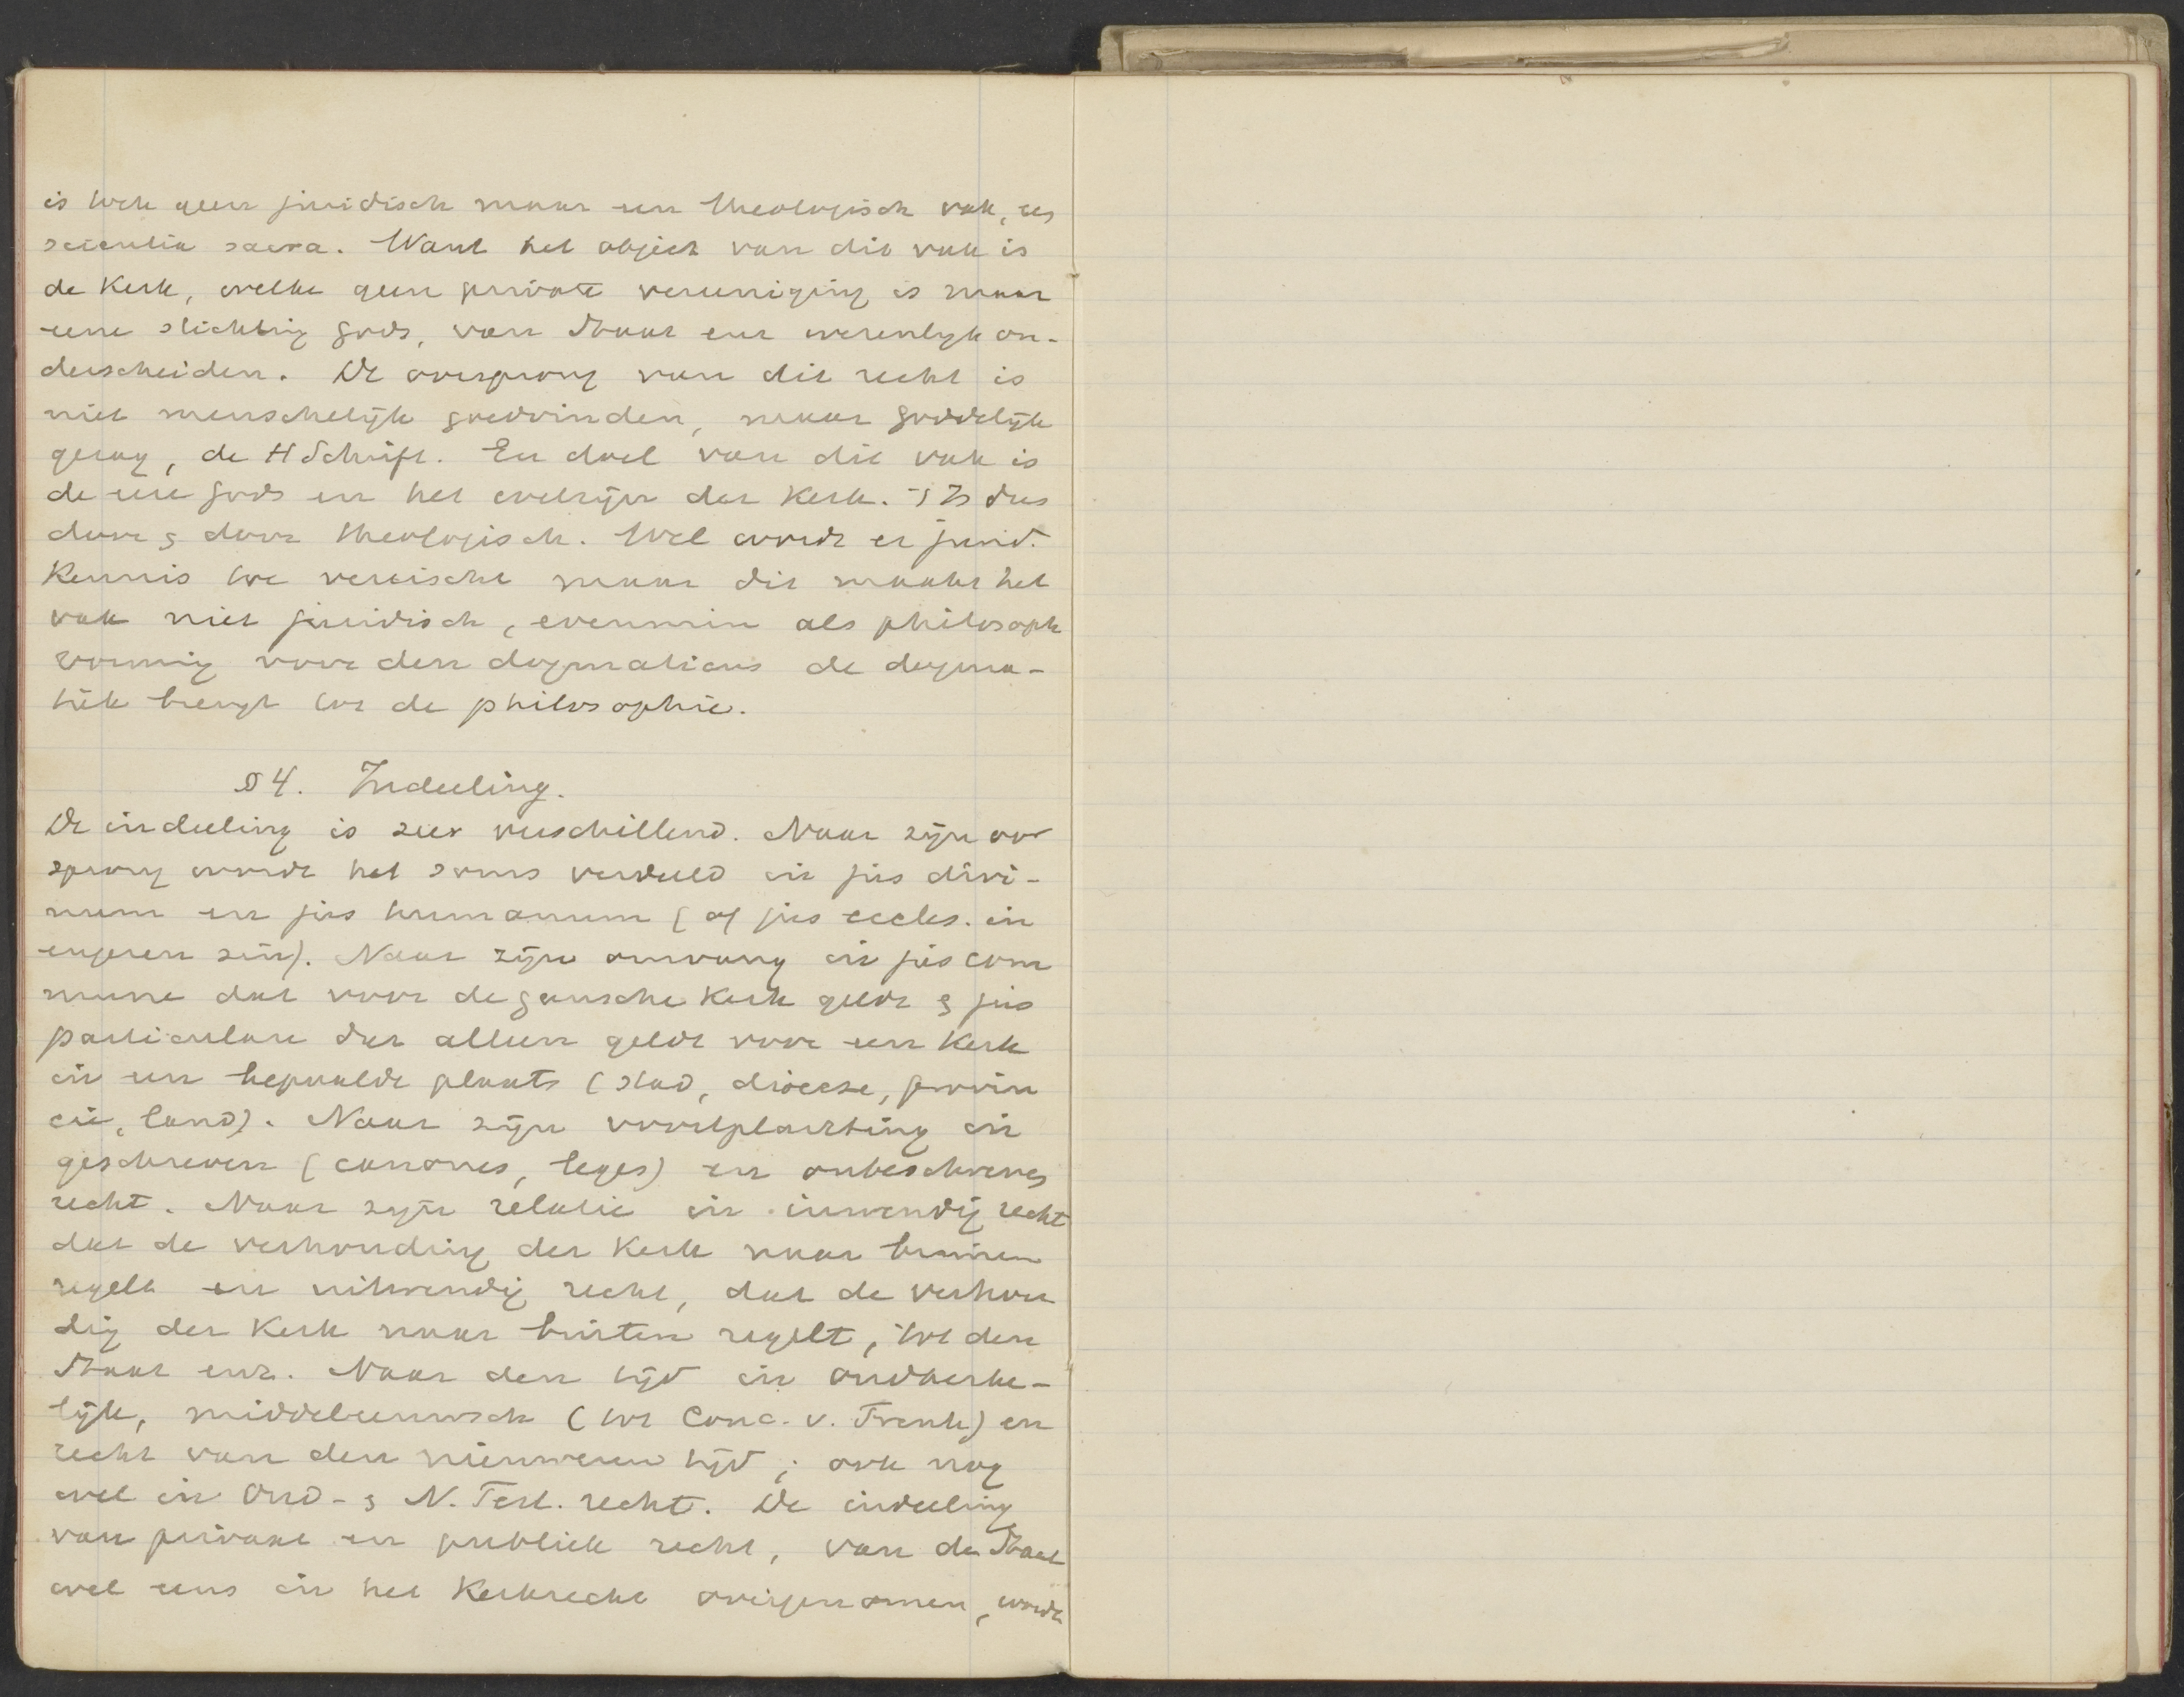 is toch geen juridisch maar een theologisch vak, een
scientia sacra. Want het object van dit vak is
de Kerk, welke geen private vereeniging is maar
eene stichting Gods, van Staat enz wezenlyk on-
derscheiden. De oorsprong van dit recht is
niet menschelijk goedvinden, maar goddelijk
gezag, de H Schrift. En doel van dit vak is
de eere Gods en het welzijn der Kerk. 't Is dus
door & door theologisch. Wel wordt er jurid.
Kennis toe vereischt maar dit maakt het
vak niet juridisch, evenmin als philosoph
vorming voor den dogmaticus de dogma-
tiek brengt tot de philosophie.
§ 4. Indeeling.
De indeeling is zeer verschillend. Naar zijn oor
sprong wordt het soms verdeeld in jus divi-
num en jus humanum (of jus eccles. in
engeren zin). Naar zijn omvang in jus com
mune dat voor de gansche Kerk geldt & jus
particulare dat alleen geldt voor een Kerk
in een bepaalde plaats (stad, diocese, provin
cie, land). Naar zijn voortplanting in
geschreven (canones, leges) en onbeschreven
recht. Naar zijn relatie in inwendig recht
dat de verhouding der Kerk naar binnen
regelt en uitwendig recht, dat de verhou
dig der Kerk naar buiten regelt, tot den
Staat enz. Naar den tijd in oudkerke-
lijk, middeleeuwsch (tot Conc. v. Trente) en
recht van den nieuweren tijd; ook nog
wel in Oud- & N. Test. recht. De indeeling
van privaat en publiek recht, van de Staat
wel eens in het Kerkrecht overgenomen, wordt